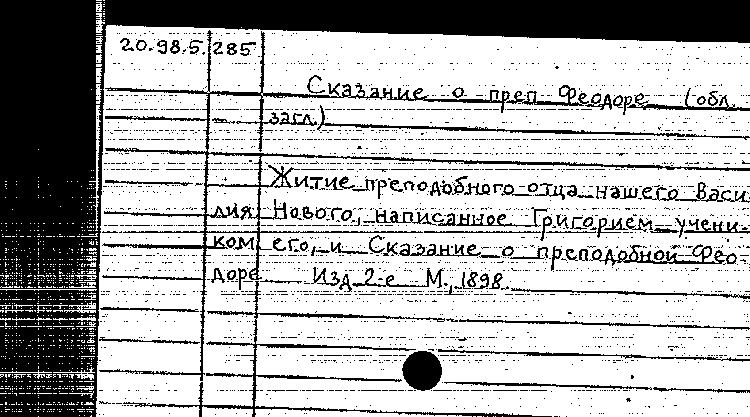 20.98.5. 285
Сказание о преп Феодоре (обл.
загл.)
Житие преподобного отца нашего Васи
лия Нового, написанное Григорием учени-
ком его, и Сказание о преподобной Фео-
доре Изд 2-е М., 1898